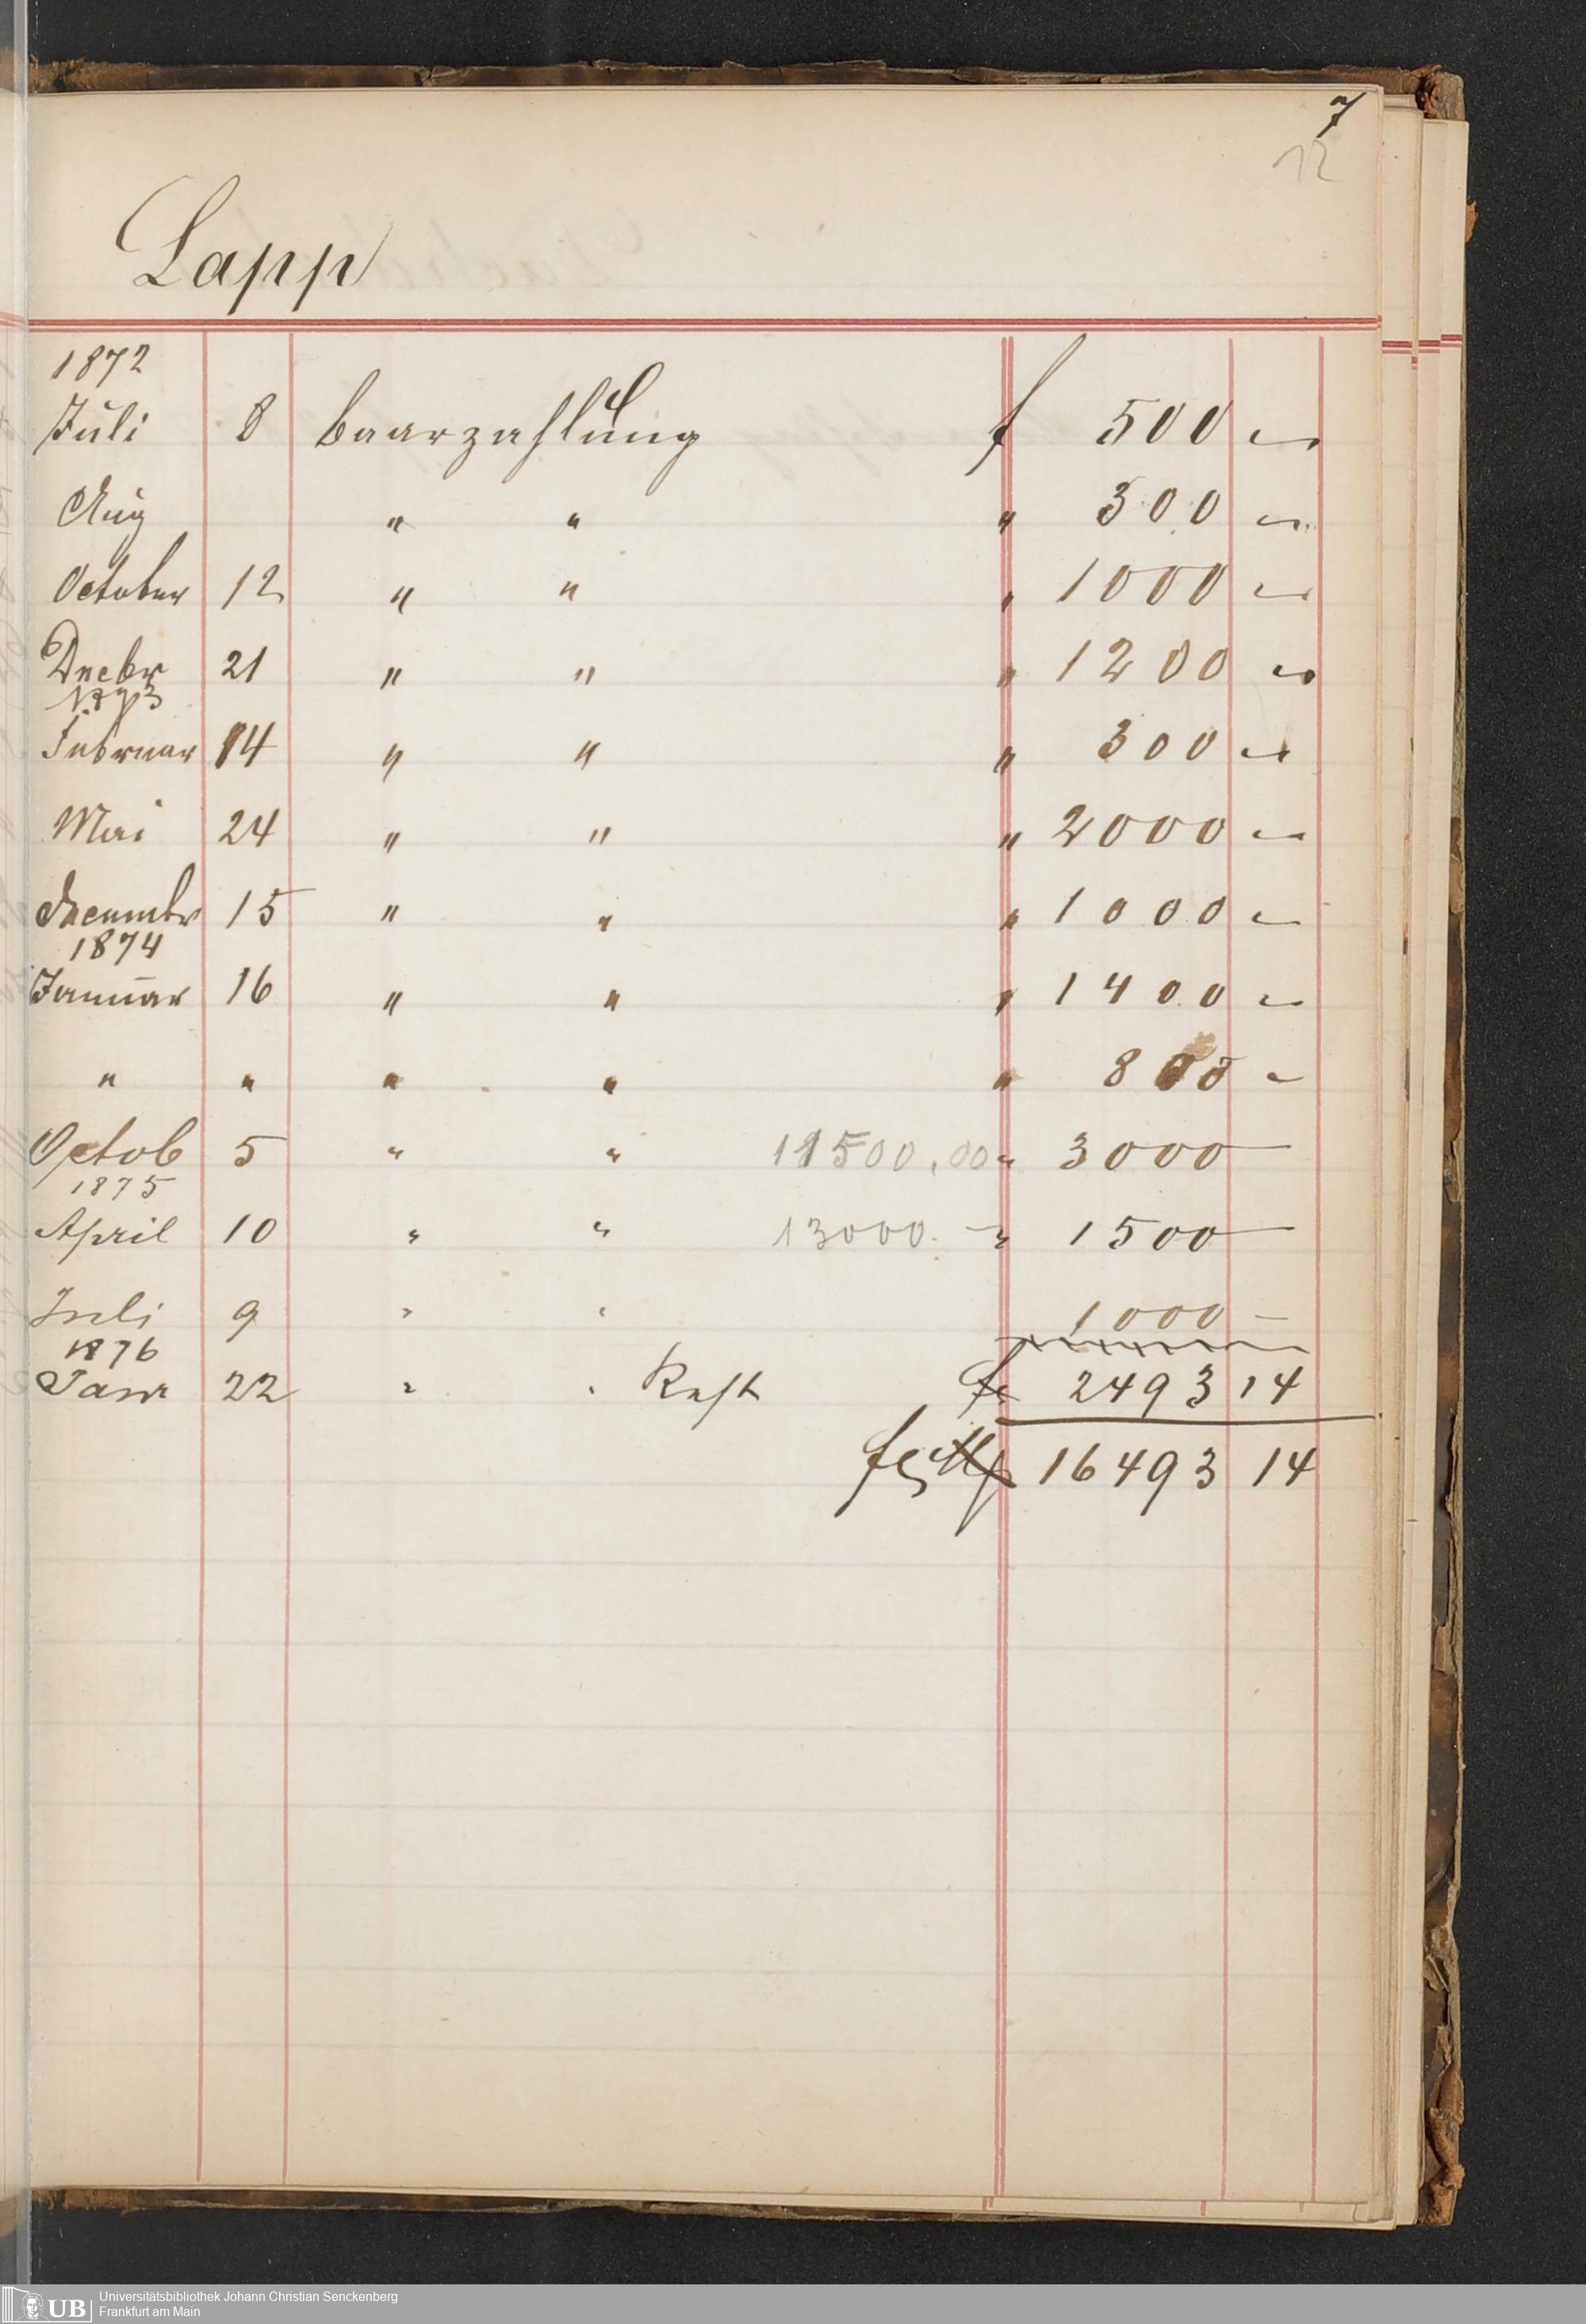 7
12
Lapp
1872
Juli 8 baarzahlung f 500 —
Aug " " " 300 —
October 12 " " " 1000 —
Decbr 21 " " " 1200 —
1873
Februar 14 " " " 300 —
Mai 24 " " " 2000 —
Decembr 15 " " " 1000 —
1874
Januar 16 " " " 1400 —
" " " " " 800 —
Octob 5 " " 11500,00 " 3000 —
1875
April 10 " " 13000. — " 1500 —
Juli 9 " " 1000 —
1876
Janr 22 " " Rest 2493 14
16493 14
Universitätsbibliothek Johann Christian Senckenberg
UB Frankfurt am Main